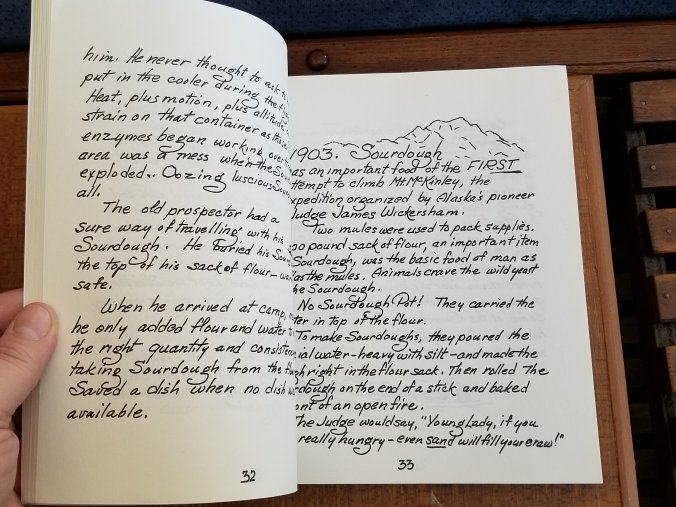 him. He never thought to ask
put in the cooler during the
Heat, plus motion, plus altitude
strain on that container as
enzymes began working
area was a mess when the
exploded.. Oozing luscious
all.
The old prospector had a
sure way of travelling with his
Sourdough. He buried his
the top of his sack of flour-
safe.
When he arrived at camp,
he only added flour and water
the right quantity and
taking Sourdough from the
Saved a dish when no dish
available.
32
1903. Sourdough
as an important food of the FIRST
to climb Mt. McKinley, the
organized by Alaska's pioneer
James Wickersham.
Two mules were used to pack supplies.
pound sack of flour, an important item
Sourdough, was the basic food of man as
as the mules. Animals crave the wild yeast
Sourdough.
No Sourdough Pot! They carried the
in top of the flour.
To make Sourdoughs, they poured the
water-heavy with silt-and made the
right in the flour sack. Then rolled the
dough on the end of a stick and baked
of an open fire.
The Judge would say, "Young Lady, if you
really hungry-even sand will fill your craw!"
33